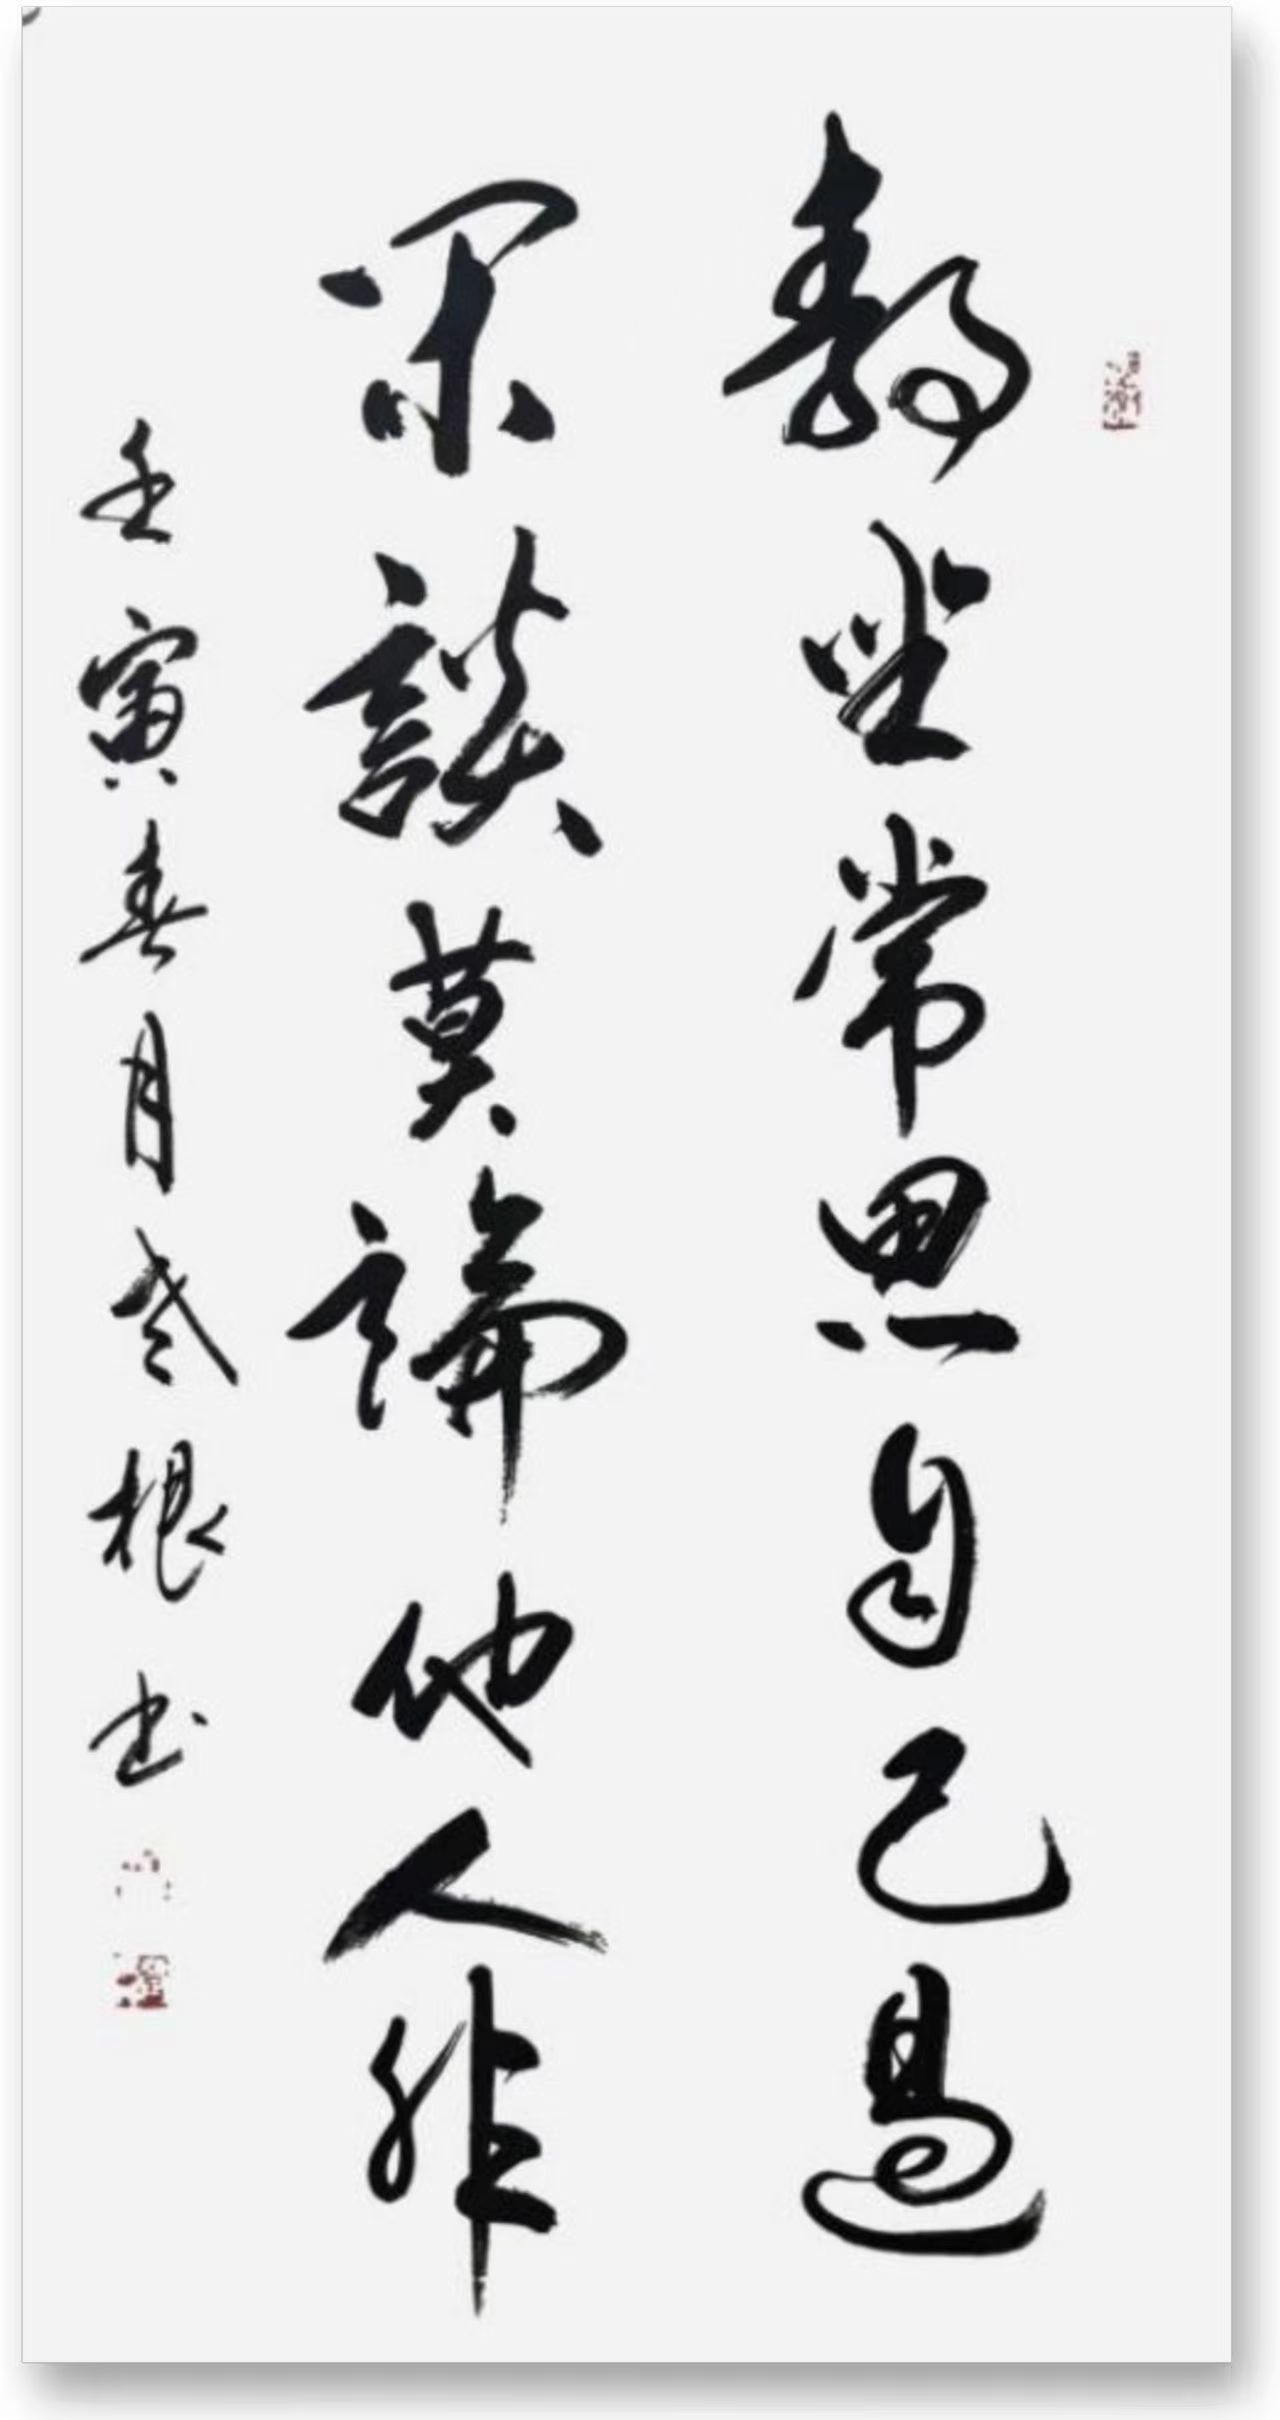 静坐常思自己過
闲談莫論他人非
壬寅春月老根书